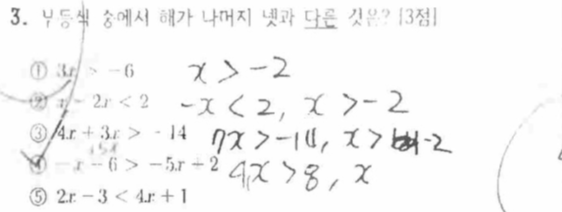 3. 부등식 중에서 해가 나머지 넷과 다른 것은? [3점]
① 3x > -6 x > -2
② x - 2x < 2 -x < 2, x > -2
③ 4x + 3x > -14 7x > -14, x > -2
④ -x - 6 > -5x + 2 4x > 8, x
⑤ 2x - 3 < 4x + 1